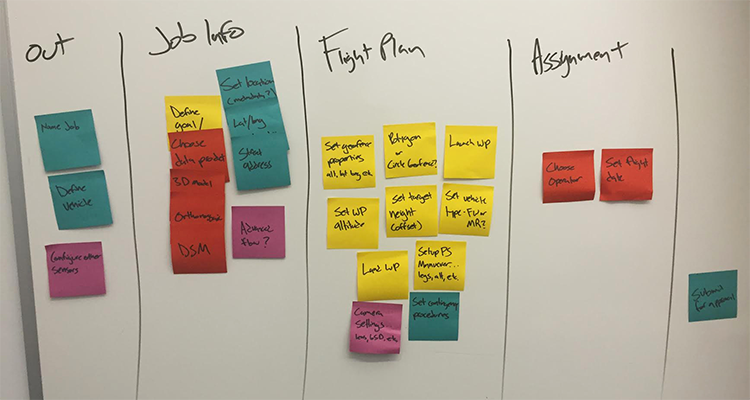 Out
Name Job
Define
Vehicle
Configure other
Sensors
Job Info
Define
goal/
Choose
data product
3D model
DSM
Set location
(metadata?)
Lat/long
Street
address
Advanced
flow?
Flight Plan
Set geofence
properties
alt, lat long, etc.
Polygon
or
Circle Geofence?
Launch WP
Set WP
altitude
Set target
height
(offset)
Set vehicle
type - FW or
MR?
Land WP
Setup PS
Maneuver...
legs, alt, etc.
Camera
Settings...
lens, GSD, etc.
Set contingency
procedures
Assignment
Choose
Operator
Set flight
date
Submit
for approval